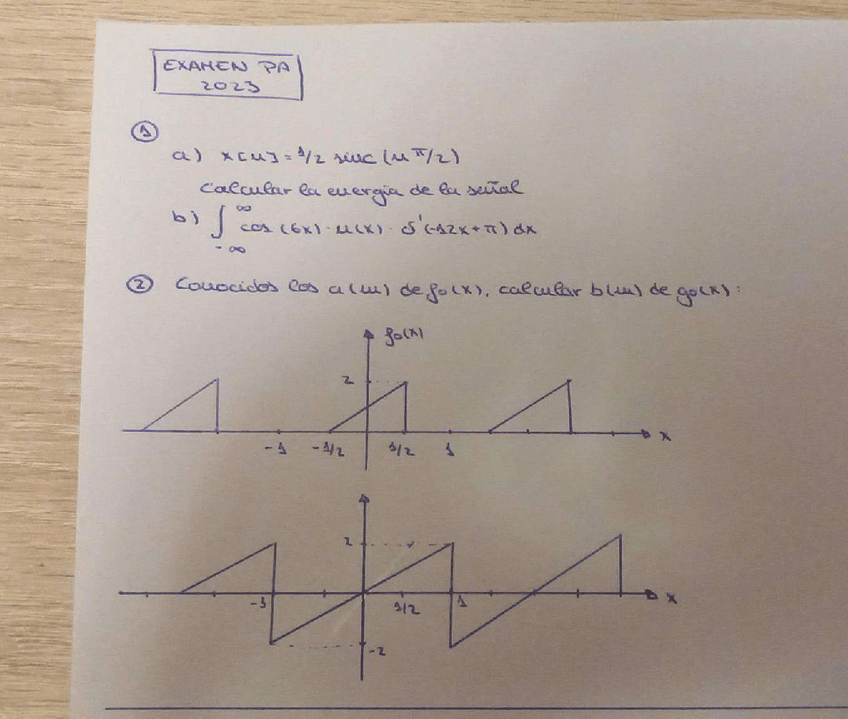 EXAMEN PA
2023
1
a) x[n] = 1/2 sinc (n π/2)
Calcular la energía de la señal
b) ∫_{-∞}^{∞} cos (6x) · u(x) · δ'(-12x+π) dx
2 Conocidos los a(m) de f₀(x), calcular b(m) de g₀(x):
f₀(x)
2
-1 -1/2 1/2 1 x
2
-1 1/2 1 x
-2